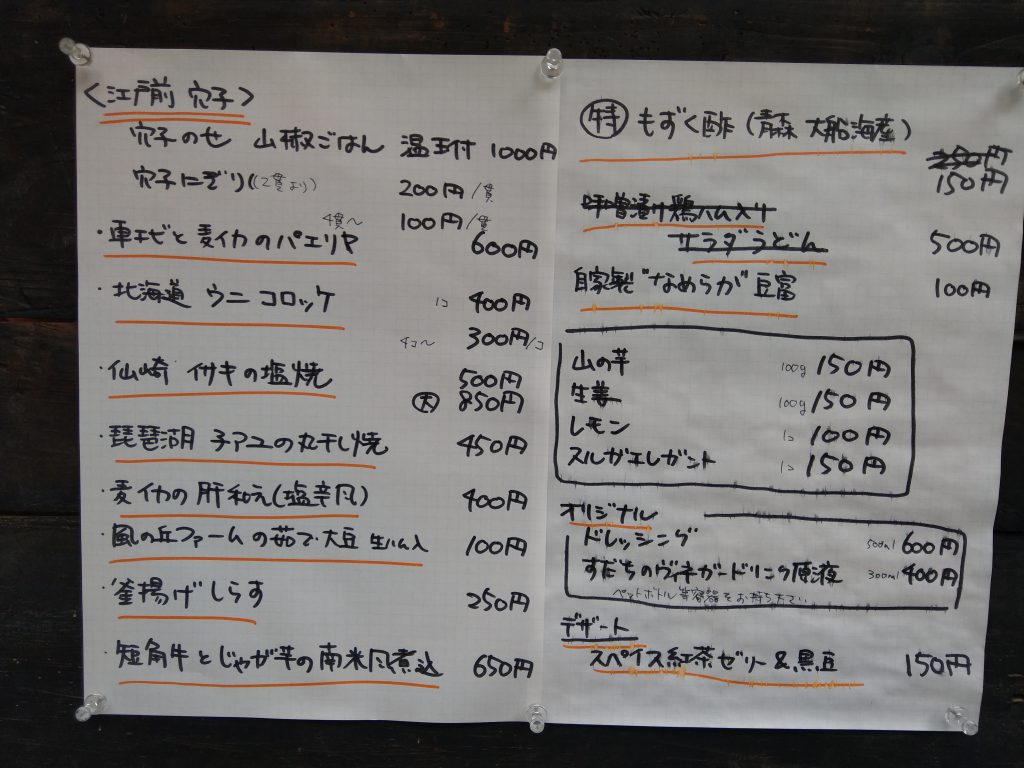 〈江戸前 穴子〉
穴子のせ 山椒ごはん 温玉付 1000円
穴子にぎり((2貫より) 200円/貫
4貫～ 100円/貫
・車エビと麦イカのパエリヤ 600円
・北海道 ウニ コロッケ 1コ 400円
4コ～ 300円/コ
・仙崎 イサキの塩焼 500円
大 850円
・琵琶湖 子アユの丸干し焼 450円
・麦イカの肝和え(塩辛風) 400円
・風の丘ファームの茹で大豆 生ハム入 100円
・釜揚げしらす 250円
・短角牛とじゃが芋の南米風煮込 650円
特 もずく酢(青森 大船海産)
250円
150円
味噌漬け鶏ハム入り
サラダうどん 500円
自家製"なめらか"豆富 100円
山の芋 100g 150円
生姜 100g 150円
レモン 1コ 100円
スルガエレガント 1コ 150円
オリジナル
ドレッシング 500ml 600円
すだちのヴィネガードリンク原液 300ml 400円
ペットボトル等容器をお持ち下さい
デザート
スペイス紅茶ゼリー&黒豆 150円